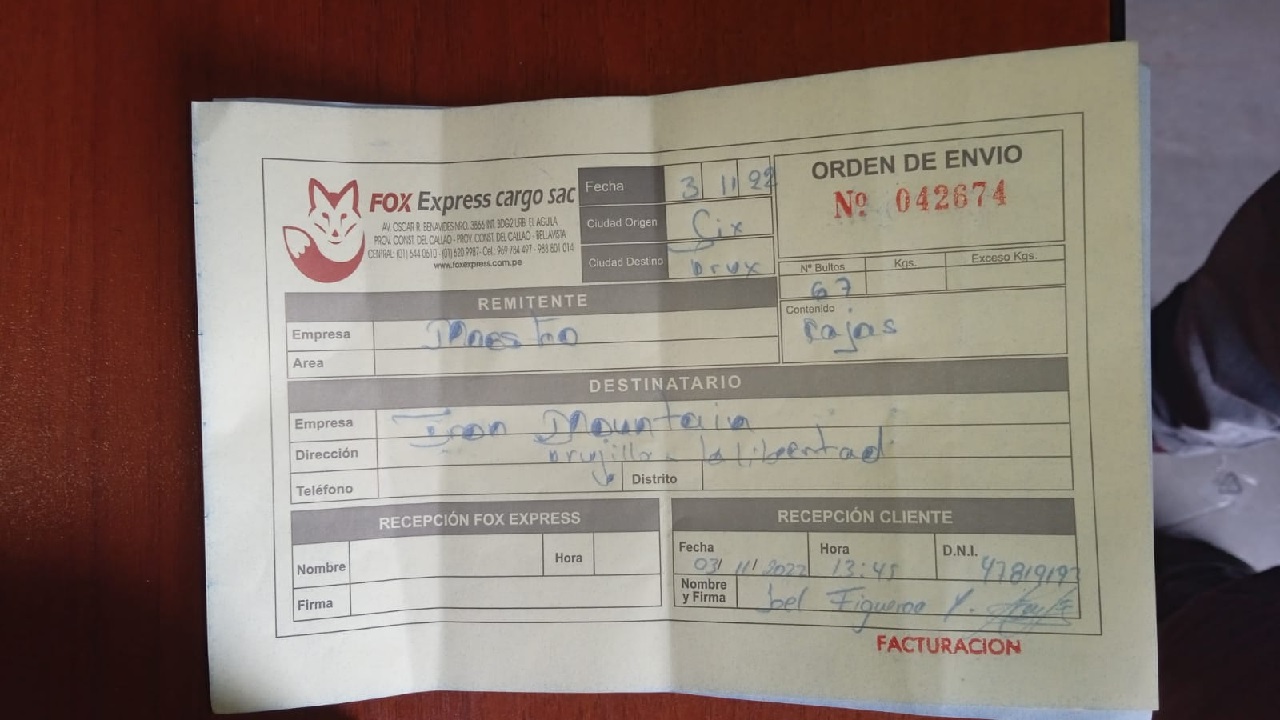 FOX Express cargo sac
AV. OSCAR R. BENAVIDES NRO. 3866 INT. 3DG2 URB. EL AGUILA
PROV. CONST. DEL CALLAO - PROV. CONST. DEL CALLAO - BELLAVISTA
www.foxexpress.com.pe
Fecha 3 11 22
Ciudad Origen
Ciudad Destino
ORDEN DE ENVIO
Nº 042674
Nº Bultos Kgs. Exceso Kgs.
67
Contenido
Cajas
REMITENTE
Empresa
Area
DESTINATARIO
Empresa Iron Mountain
Dirección Trujillo - la libertad
Teléfono Distrito
RECEPCIÓN FOX EXPRESS
Nombre Hora
Firma
RECEPCIÓN CLIENTE
Fecha Hora D.N.I.
03/11/2022 13:45 47819197
Nombre y Firma Joel Figueroa Y.
FACTURACION